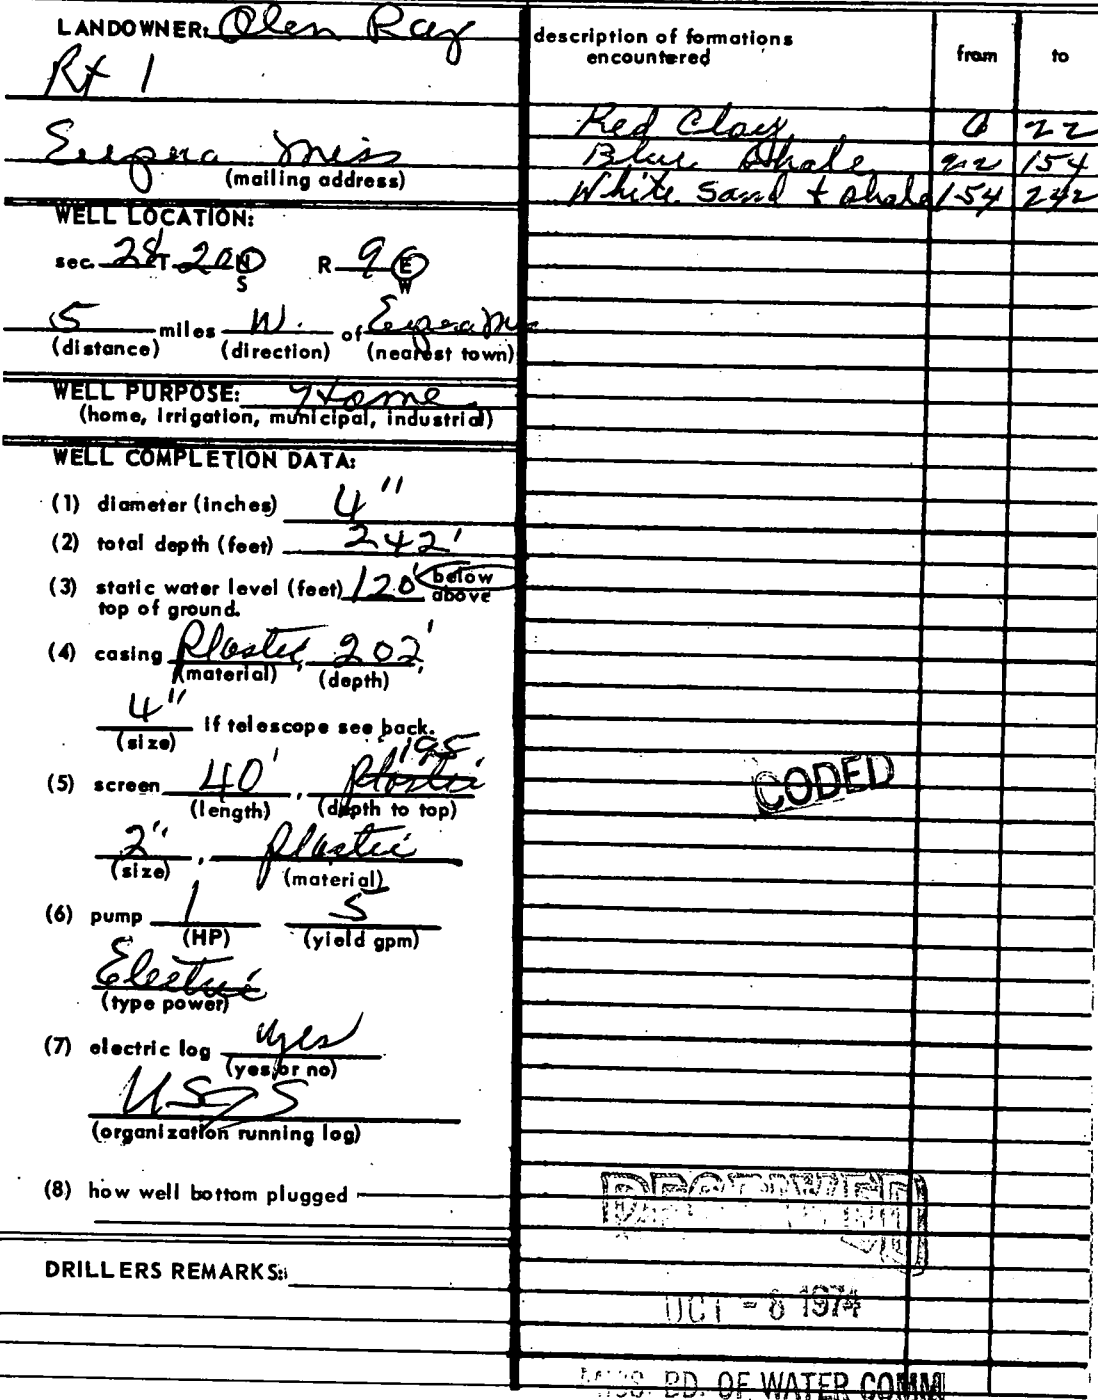 LANDOWNER: Olen Ray
Rt 1
Eupora Miss
(mailing address)
WELL LOCATION:
sec. 28 T 20 N S R 9 E W
5 miles W. of Eupora Miss
(distance) (direction) (nearest town)
WELL PURPOSE: Home
(home, irrigation, municipal, industrial)
WELL COMPLETION DATA:
(1) diameter (inches) 4"
(2) total depth (feet) 242'
(3) static water level (feet) 120' below above
top of ground.
(4) casing Plastic, 202'
(material) (depth)
4" if telescope see back.
(size)
195
(5) screen 40', plastic
(length) (depth to top)
2", plastic
(size) (material)
(6) pump 1 5
(HP) (yield gpm)
Electric
(type power)
(7) electric log yes
(yes or no)
USGS
(organization running log)
(8) how well bottom plugged
DRILLERS REMARKS:
description of formations encountered from to
Red Clay 0 22
Blue Shale 22 154
White Sand + shale 154 242
CODED
RECEIVED
OCT - 8 1974
MISS. BD. OF WATER COMM